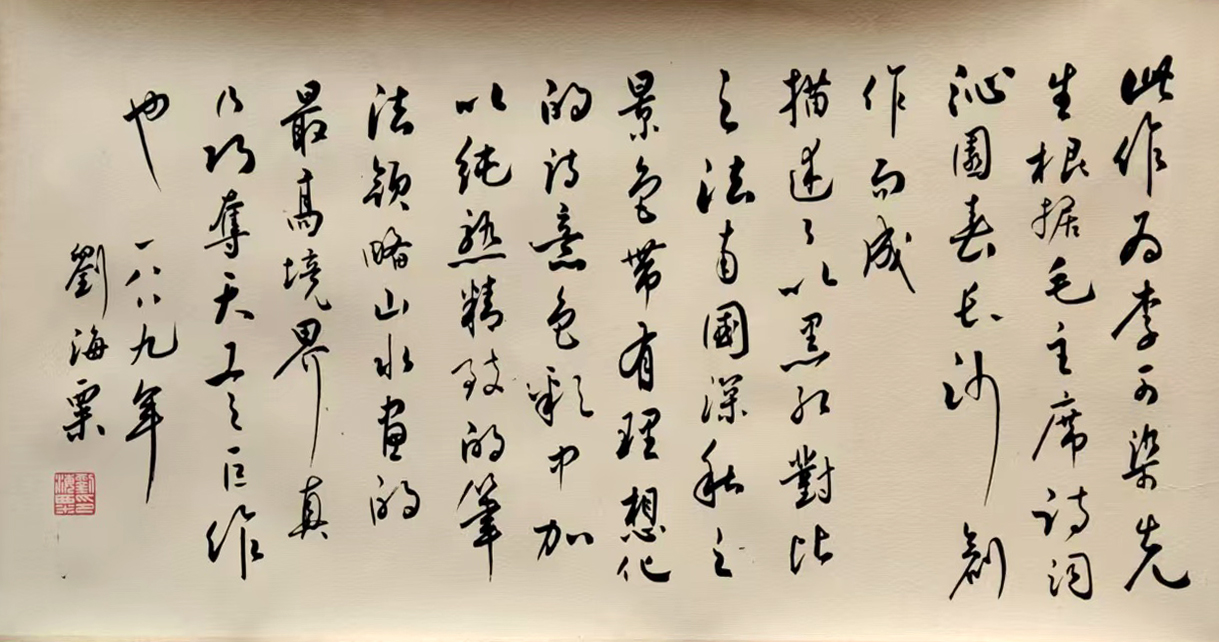 此作为李可染先
生根据毛主席诗词
沁園春长沙 創
作而成
描述了以黑红對比
之法南國深秋之
景色帶有理想化
的诗意色彩中加
以纯熟精致的筆
法领略山水画的
最高境界真
乃巧奪天工之巨作
也 一八八九年
劉海粟